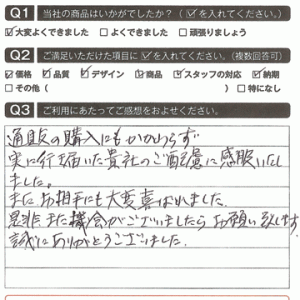 Q1 当社の商品はいかがでしたか？（☑を入れてください。）
☑大変よくできました □よくできました □頑張りましょう
Q2 ご満足いただけた項目に☑を入れてください。（複数回答可）
☑価格 ☑品質 ☑デザイン ☑商品 ☑スタッフの対応 ☑納期
□その他（ ） □特になし
Q3 ご利用にあたってご感想をおよせください。
通販の購入にもかかわらず
実に行き届いた貴社のご配慮に感服いたし
ました。
またお相手にも大変喜ばれました。
是非また機会がございましたらお願い致します
誠にありがとうございました。